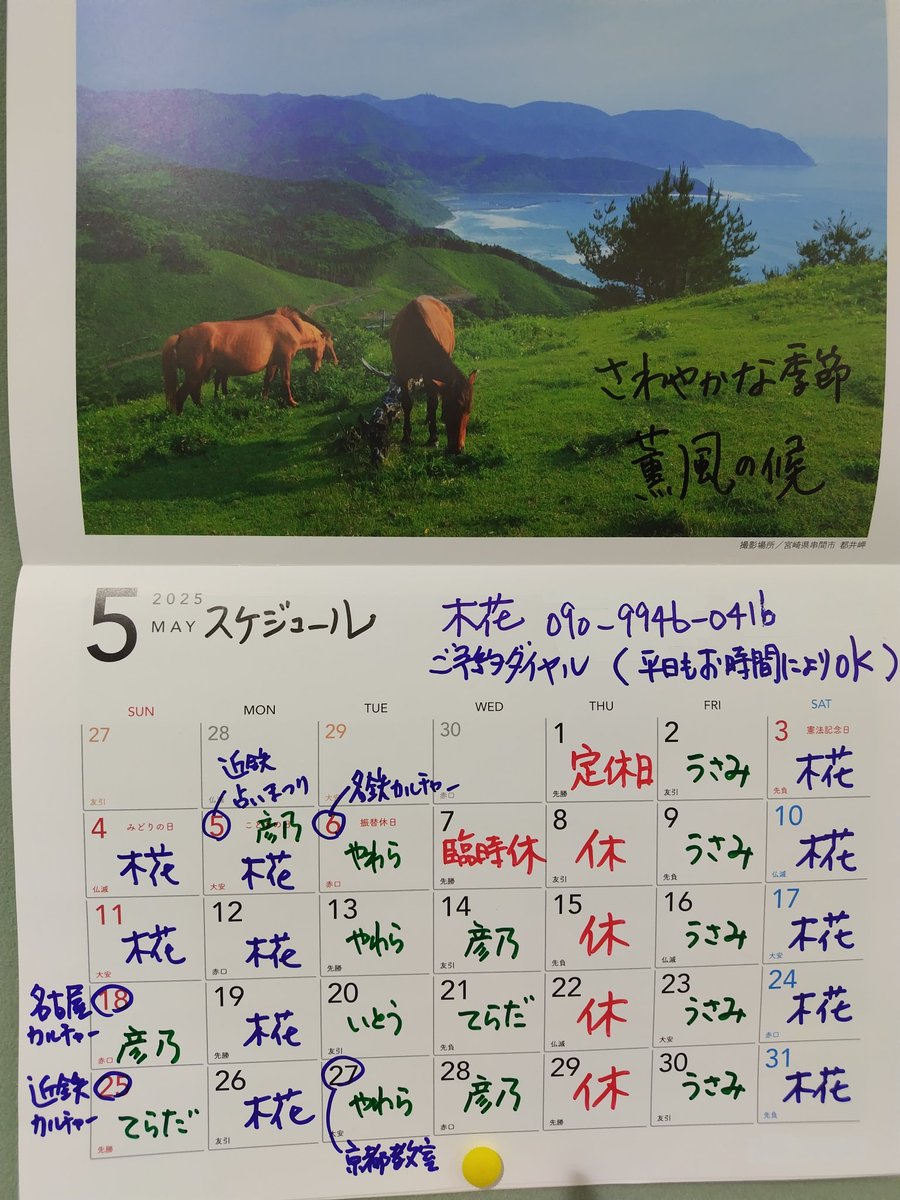 さわやかな季節
薫風の候
撮影場所／宮崎県串間市 都井岬
5 2025 MAY スケジュール
木花 090-9946-0416
ご予約ダイヤル（平日もお時間によりOK）
SUN MON TUE WED THU FRI SAT
27 28 29 30 1 2 3 憲法記念日
近鉄 占いまつり 定休日 うさみ 木花
友引 先勝 先負
名鉄カルチャー
4 みどりの日 5 6 振替休日 7 8 9 10
彦乃
木花 木花 やわら 臨時休 休 うさみ 木花
仏滅 大安 赤口 先勝 友引 先負 仏滅
11 12 13 14 15 16 17
木花 木花 やわら 彦乃 休 うさみ 木花
大安 赤口 先勝 友引 先負 仏滅 大安
名古屋カルチャー
18 19 20 21 22 23 24
彦乃 木花 いとう てらだ 休 うさみ 木花
赤口 先勝 友引 先負 仏滅 大安 赤口
近鉄カルチャー
25 26 27 28 29 30 31
てらだ 木花 やわら 彦乃 休 うさみ 木花
先勝 友引 大安 赤口 先勝 友引 先負
京都教室